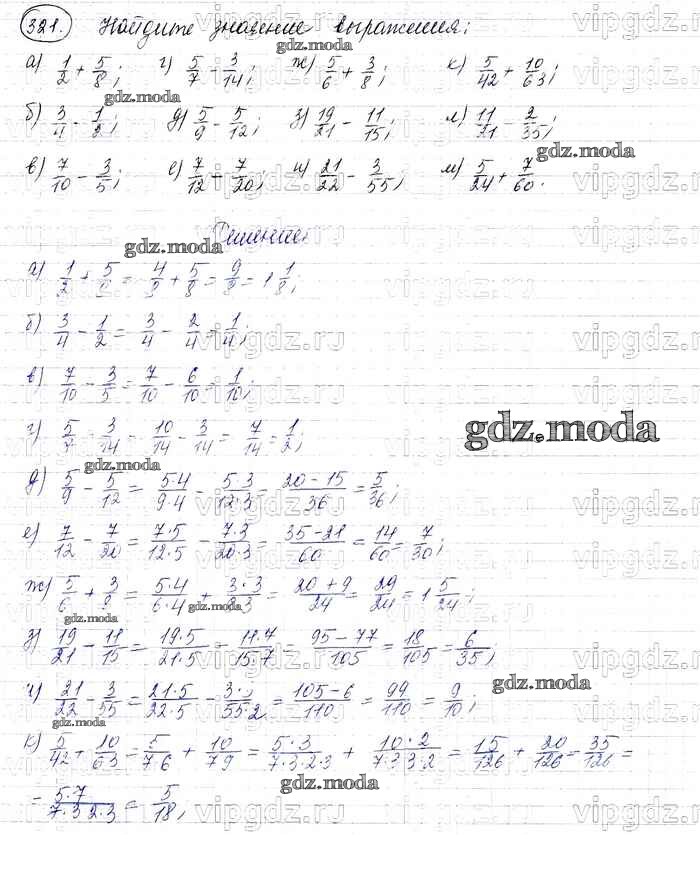 321. Найдите значение выражения:
а) 1/2 + 5/8; г) 5/7 - 3/14; ж) 5/6 + 3/8; к) 5/42 + 10/63;
gdz.moda
б) 3/4 - 1/2; д) 5/9 - 5/12; з) 19/21 - 11/15; л) 11/21 - 2/35;
в) 7/10 - 3/5; е) 7/12 - 7/20; и) 21/22 - 3/55; м) 5/24 + 7/60.
Решение:
а) 1/2 + 5/8 = 4/8 + 5/8 = 9/8 = 1 1/8;
б) 3/4 - 1/2 = 3/4 - 2/4 = 1/4;
в) 7/10 - 3/5 = 7/10 - 6/10 = 1/10;
г) 5/7 - 3/14 = 10/14 - 3/14 = 7/14 = 1/2;
gdz.moda
д) 5/9 - 5/12 = 5·4/9·4 - 5·3/12·3 = 20-15/36 = 5/36;
е) 7/12 - 7/20 = 7·5/12·5 - 7·3/20·3 = 35-21/60 = 14/60 = 7/30;
ж) 5/6 + 3/8 = 5·4/6·4 + 3·3/8·3 = 20+9/24 = 29/24 = 1 5/24;
з) 19/21 - 11/15 = 19·5/21·5 - 11·7/15·7 = 95-77/105 = 18/105 = 6/35;
и) 21/22 - 3/55 = 21·5/22·5 - 3·2/55·2 = 105-6/110 = 99/110 = 9/10;
к) 5/42 + 10/63 = 5/7·6 + 10/7·9 = 5·3/7·3·2·3 + 10·2/7·3·3·2 = 15/126 + 20/126 = 35/126 =
= 5·7/7·3·2·3 = 5/18;
gdz.moda
vipgdz.ru